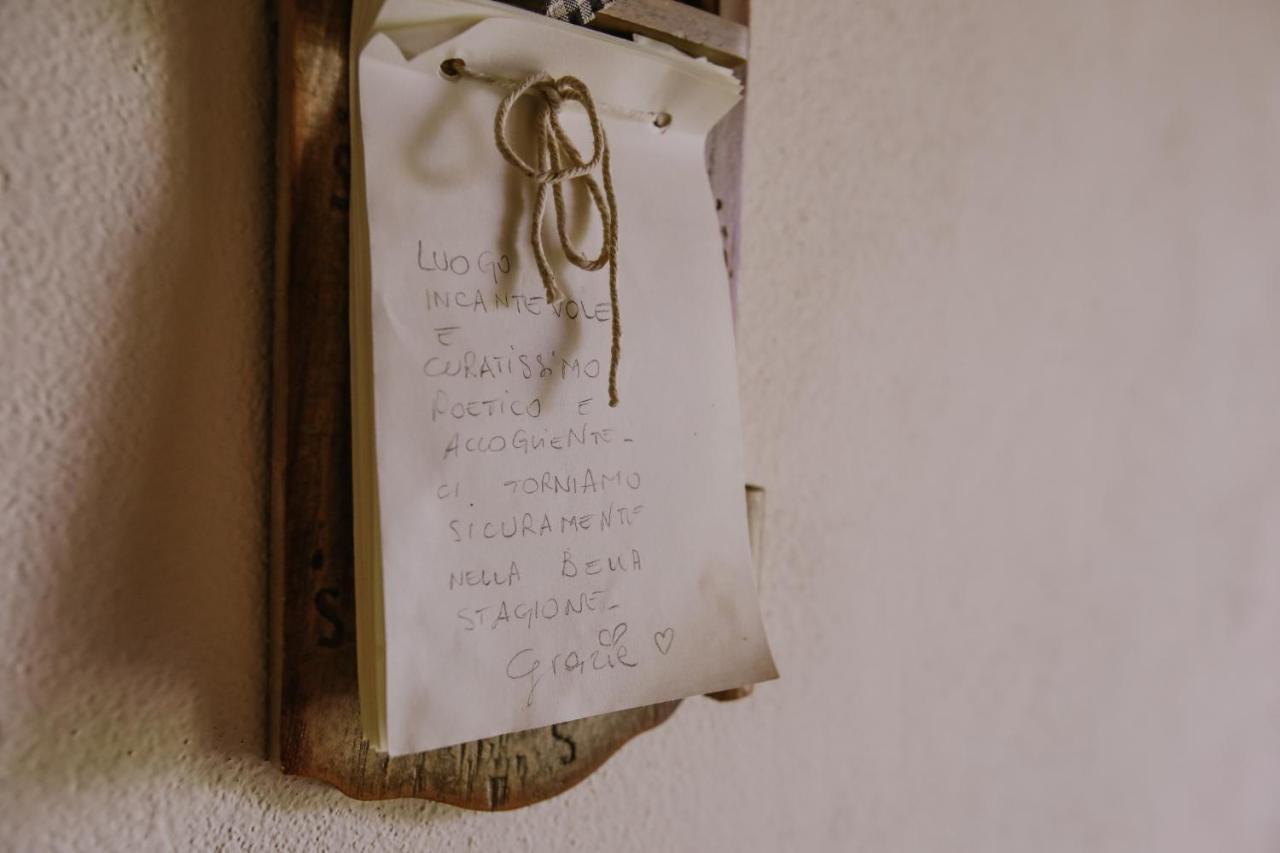 LUOGO
INCANTEVOLE
E
CURATISSIMO
POETICO E
ACCOGLIENTE-
CI TORNIAMO
SICURAMENTE
NELLA BELLA
STAGIONE-
Grazie ♡